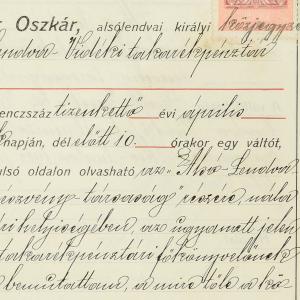 r Oszkár, alsólendvai királyi közjegyző
Lendva Vidéki takarékpénztár
lenczszáz tizenkettő évi április
napján, dél előtt 10. órakor egy váltót,
ulsó oldalon olvasható "Alsó Lendva
részvény társaság" részére, nála
helyiségében, az ugyanott jelen
takarékpénztári főkönyvelőnek
bemutattam, a mire tőle a kö